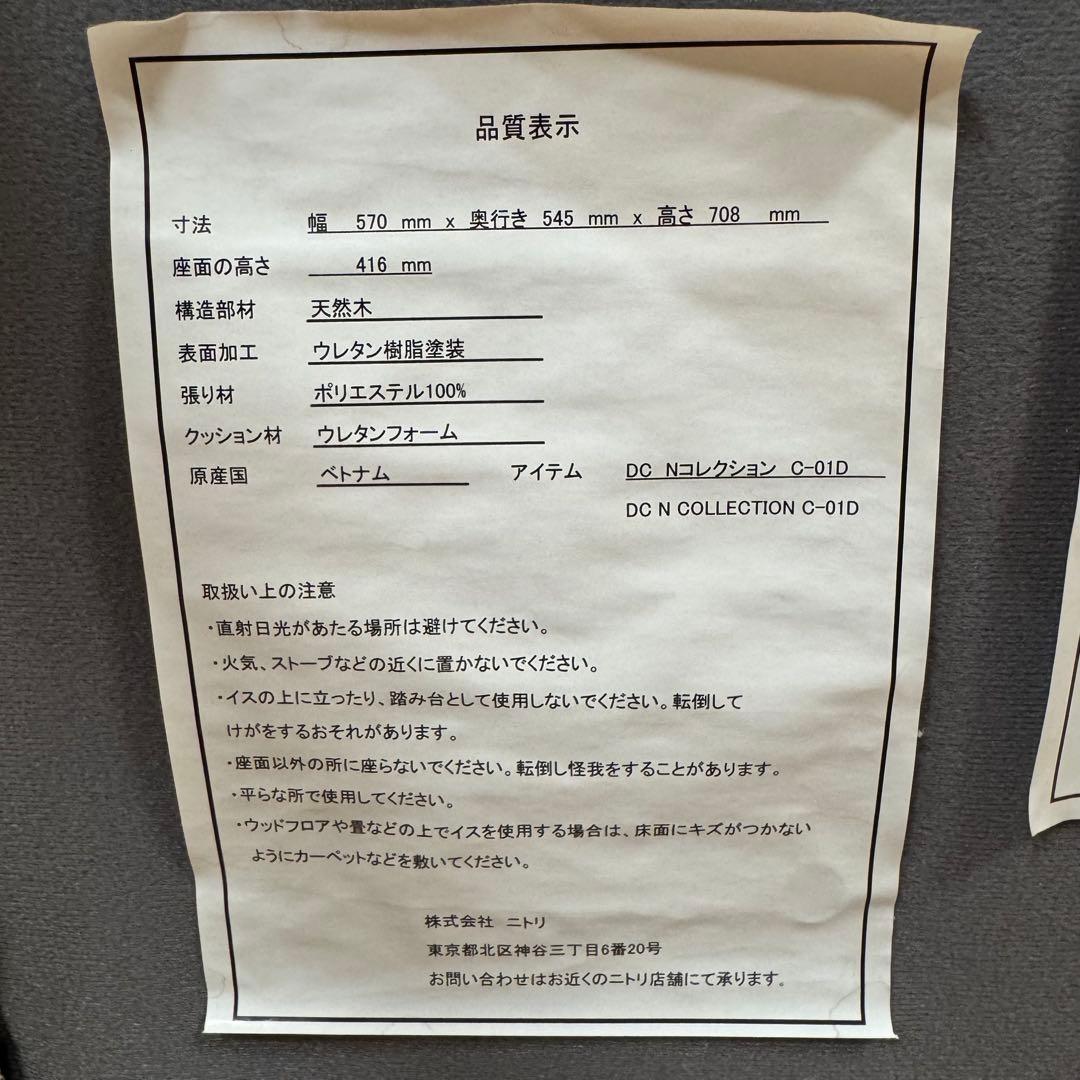 品質表示
寸法 幅 570 mm x 奥行き 545 mm x 高さ 708 mm
座面の高さ 416 mm
構造部材 天然木
表面加工 ウレタン樹脂塗装
張り材 ポリエステル100%
クッション材 ウレタンフォーム
原産国 ベトナム アイテム DC Nコレクション C-01D
DC N COLLECTION C-01D
取扱い上の注意
・直射日光があたる場所は避けてください。
・火気、ストーブなどの近くに置かないでください。
・イスの上に立ったり、踏み台として使用しないでください。転倒して
けがをするおそれがあります。
・座面以外の所に座らないでください。転倒し怪我をすることがあります。
・平らな所で使用してください。
・ウッドフロアや畳などの上でイスを使用する場合は、床面にキズがつかない
ようにカーペットなどを敷いてください。
株式会社 ニトリ
東京都北区神谷三丁目6番20号
お問い合わせはお近くのニトリ店舗にて承ります。